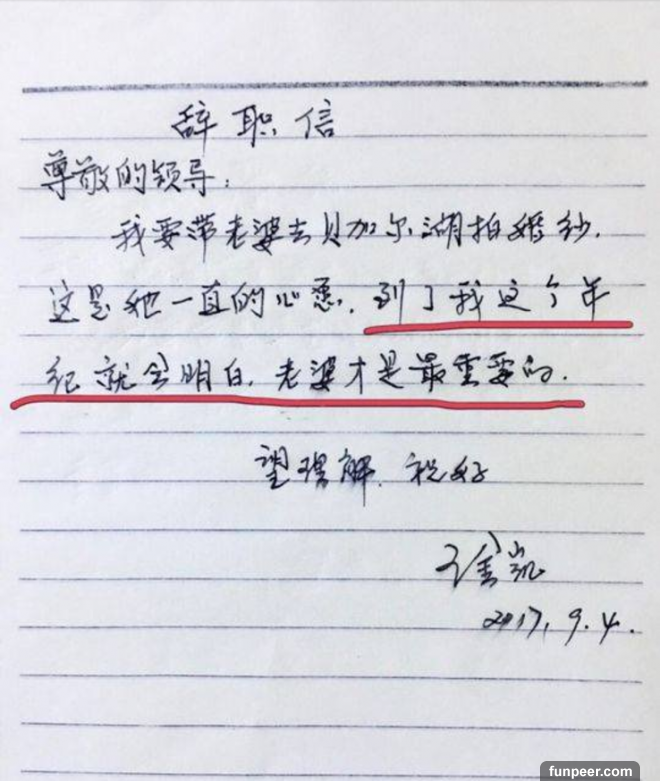 辞职信
尊敬的领导：
我要带老婆去贝加尔湖拍婚纱.
这是她一直的心愿. 到了我这个年
纪就会明白. 老婆才是最重要的.
望理解. 祝好
凯
2017. 9. 4.
funpeer.com